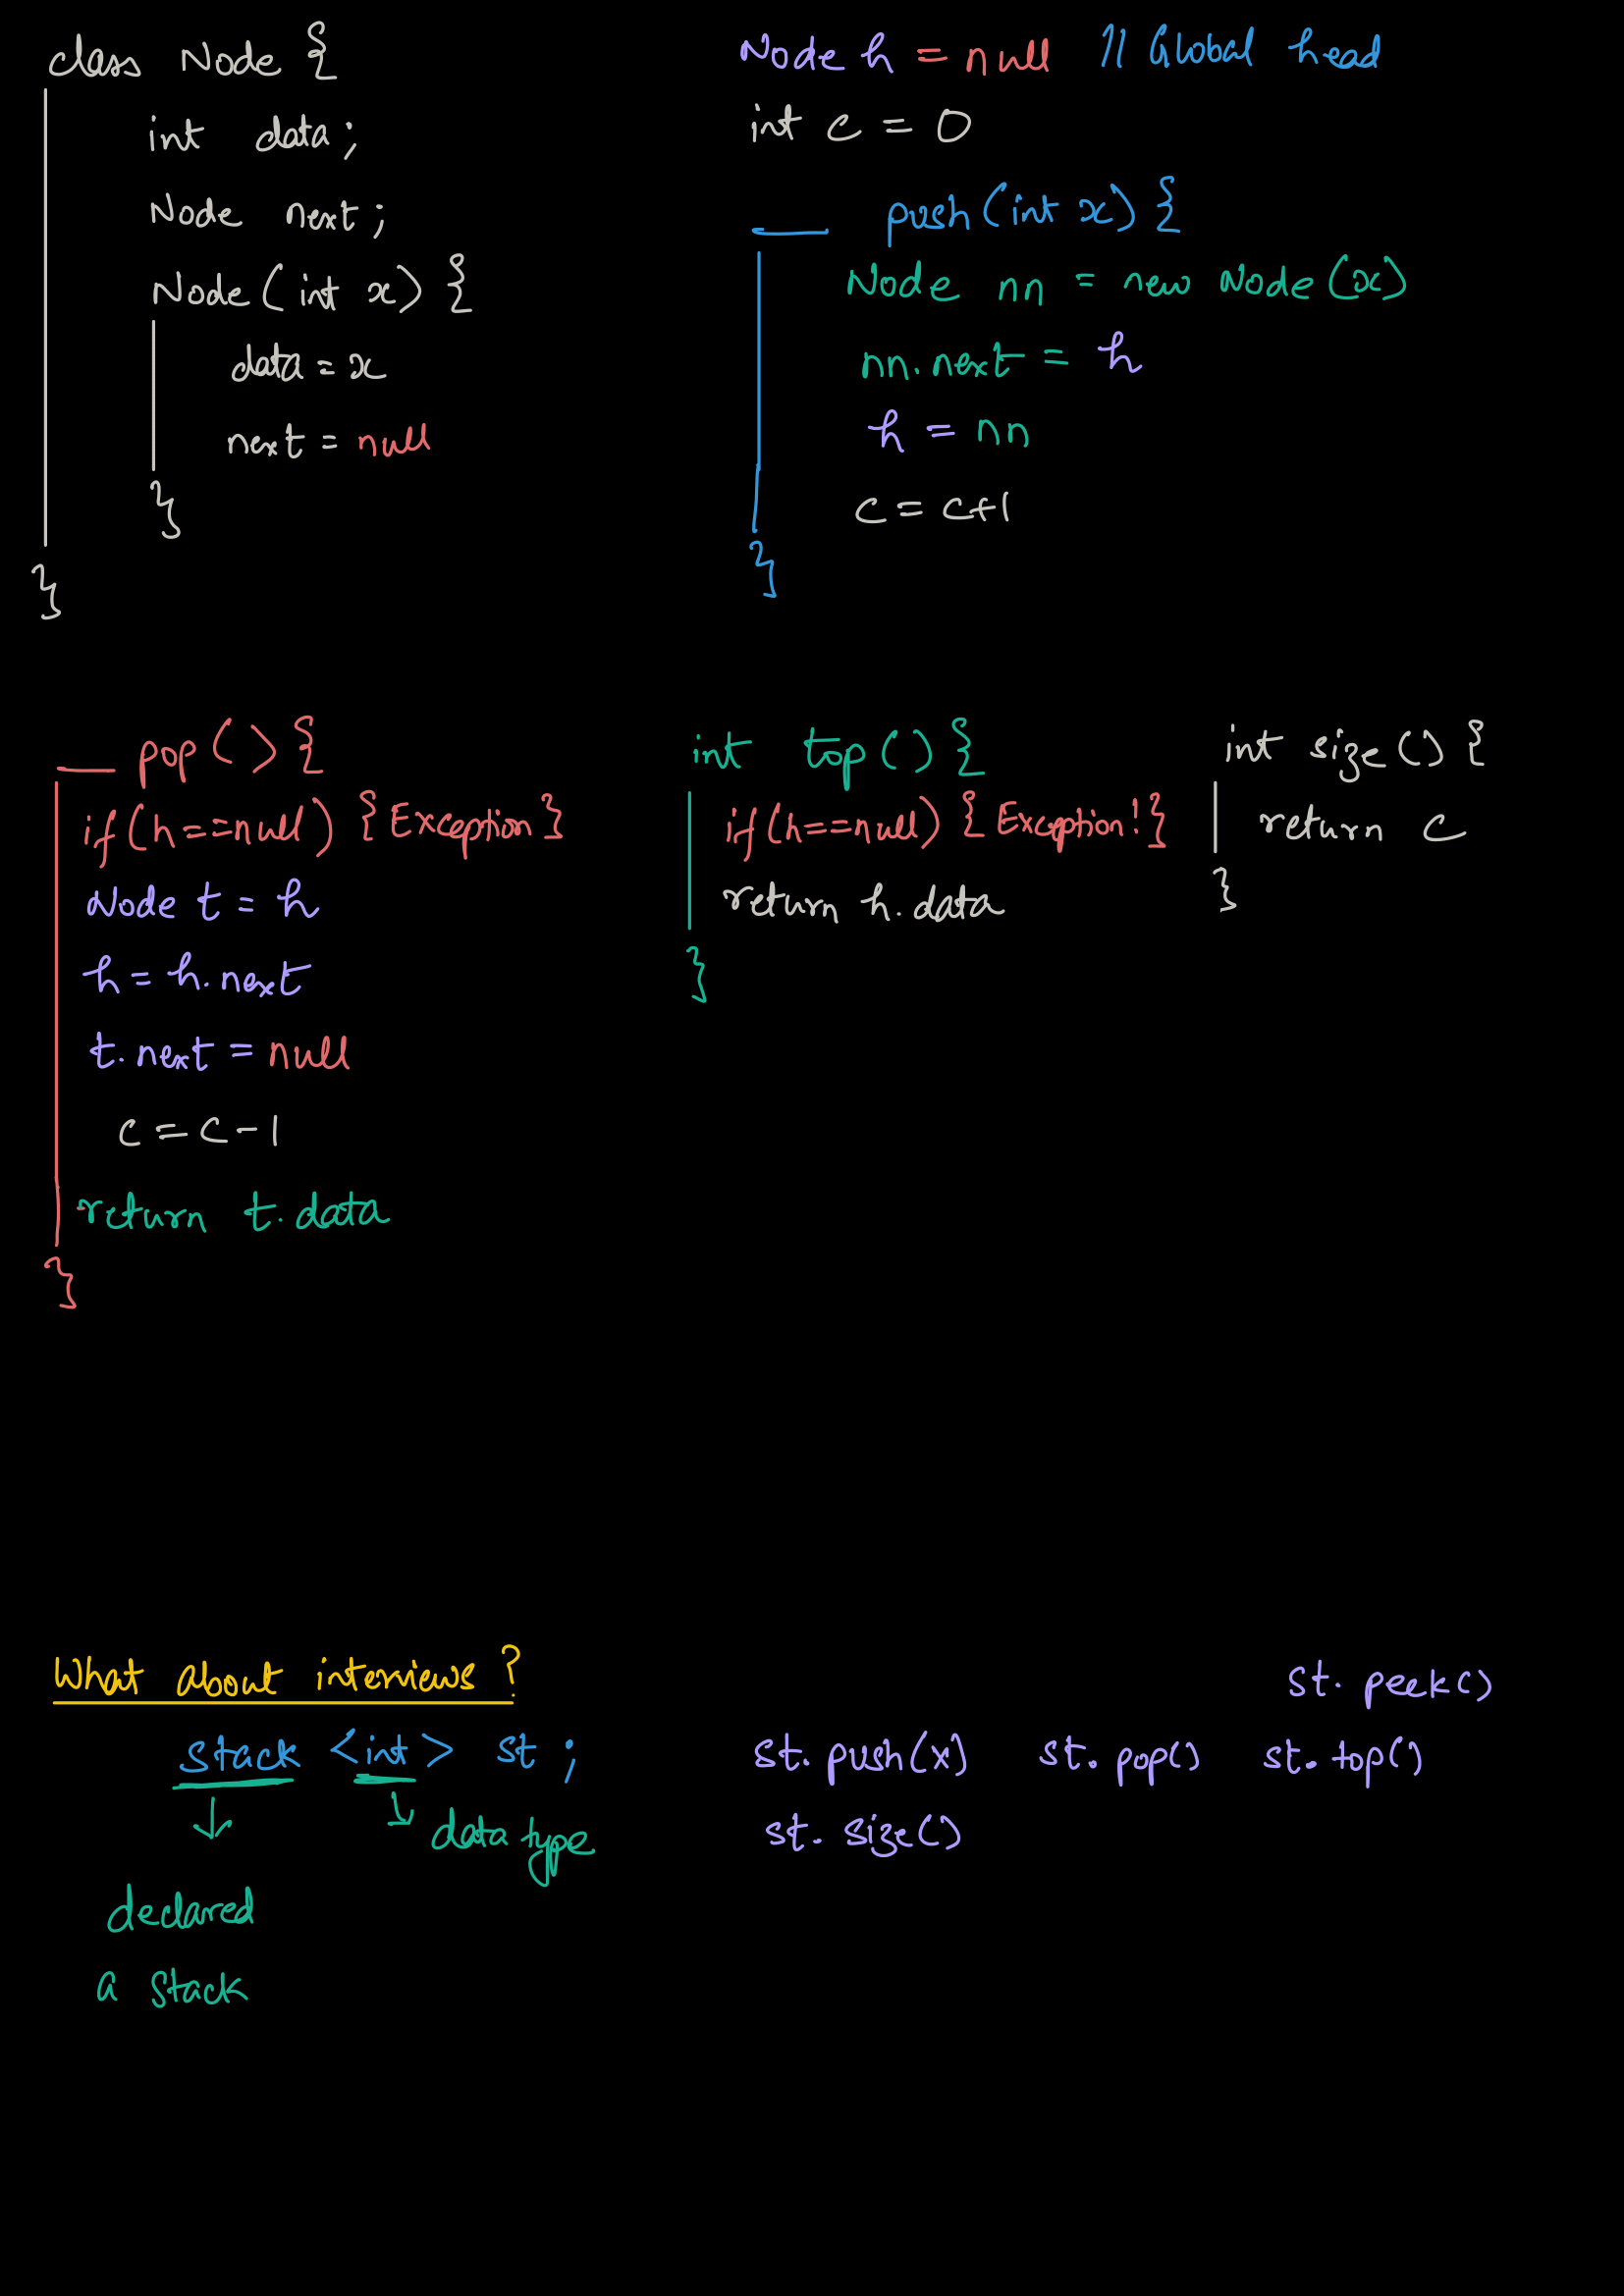 class Node {
int data;
Node next;
Node(int x) {
data = x
next = null
}
}
Node h = null // Global head
int c = 0
___ push(int x) {
Node nn = new Node(x)
nn.next = h
h = nn
c = c+1
}
___ pop() {
if(h==null) {Exception}
Node t = h
h = h.next
t.next = null
c = c-1
return t.data
}
int top() {
if(h==null) {Exception!}
return h.data
}
int size() {
return c
}
What about interviews?
stack <int> st;
data type
declared
a stack
st. peek()
st. push(x) st. pop() st. top()
st. size()